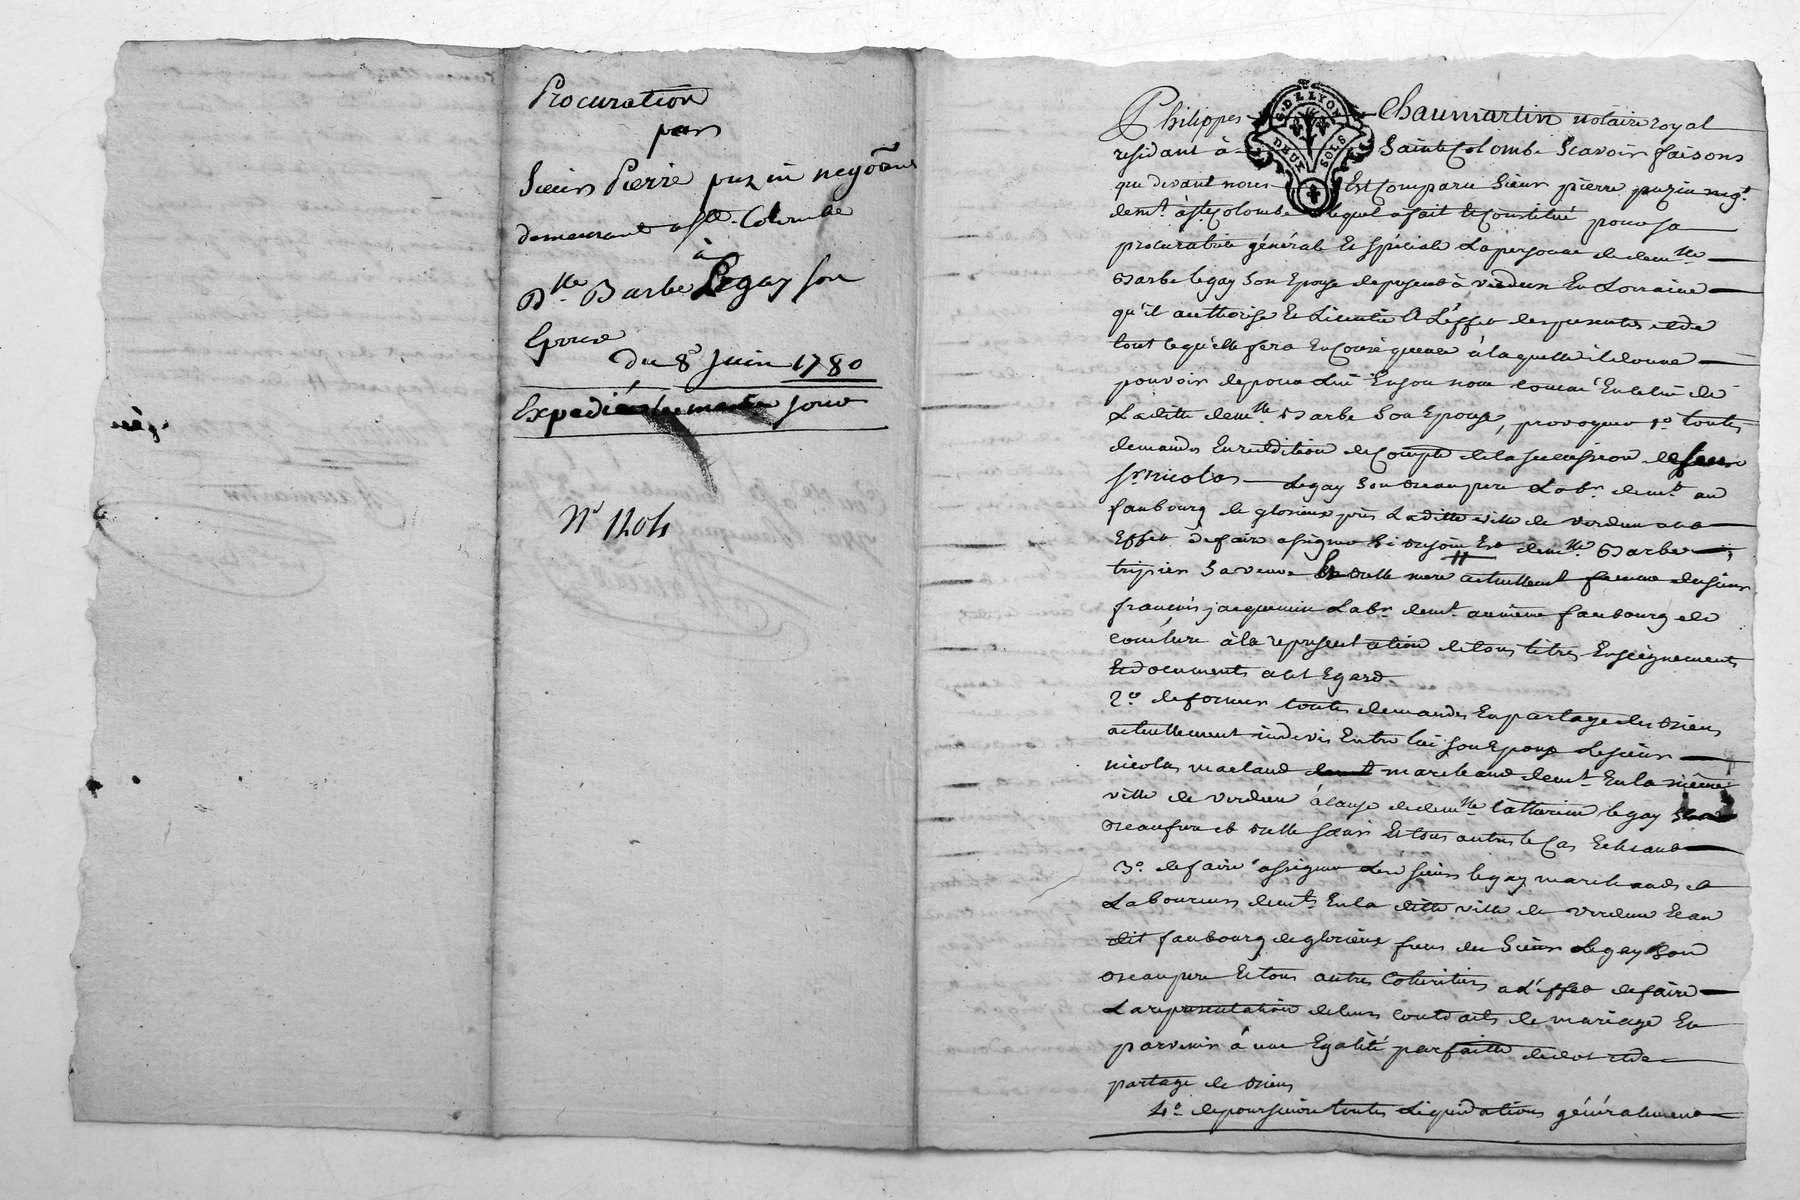 Procuration
par
Sieur Pierre puzin negōant
demeurant a Ste. Colombe
à
Dlle Barbe Legay son
Epouse
du 8e Juin 1780
Expedié
No 1204
G. D. LYON
DEUX SOLS
Philippes Chaumartin notaire royal
residant à Sainte Colombe Scavoir faisons
que devant nous Est Comparu Sieur pierre puzin negt.
demt. à St. Colombe lequel a fait & Constitué pour sa
procuratrice générale Et spéciale La personne de demlle
Barbe legay son Epouse de present à verdun En Lorraine
qu'il authorise Et Licentie A L'effet des presentes et de
tout ce qu'elle fera En Conséquence à laquelle il donne
pouvoir de pour Lui En son nom comme En celui de
Laditte demlle Barbe Son Epouse, provoquer 1o. toutes
demandes En reddition de Compte de la succession de feu
Sr. nicolas Legay Son beaupere Labr. demt. au
faubourg de glorieux près Laditte ville de verdun aux
Effet de faire assigner demlle. Barbe
tripier Sa veuve belle mere actuellement femme du sieur
francois jacquemin Labr. demt. au même faubourg de
conclure à la representation de tous titres Enseignements
Et documents a cet Egard
2o. de former toutes demandes En partage des biens
actuellement indivis Entre lui son Epouse Le sieur
nicolas marchand demt. En la même
ville de verdun à cause de demlle Catherine legay
beaufrere et belle soeur Et tous autres le Cas Echeant
3o. de faire assigner Les sieurs legay marchands et
Laboureurs demts. En la ditte ville de verdun Et au
dit faubourg de glorieux freres du Sieur Legay Son
beaupere Et tous autres Coheritiers a L'effet de faire
La representation de leurs Contracts de mariage En
parvenir à une Egalité parfaitte de dot et de
partage de biens
4o. de poursuivre toutes Liquidations généralement